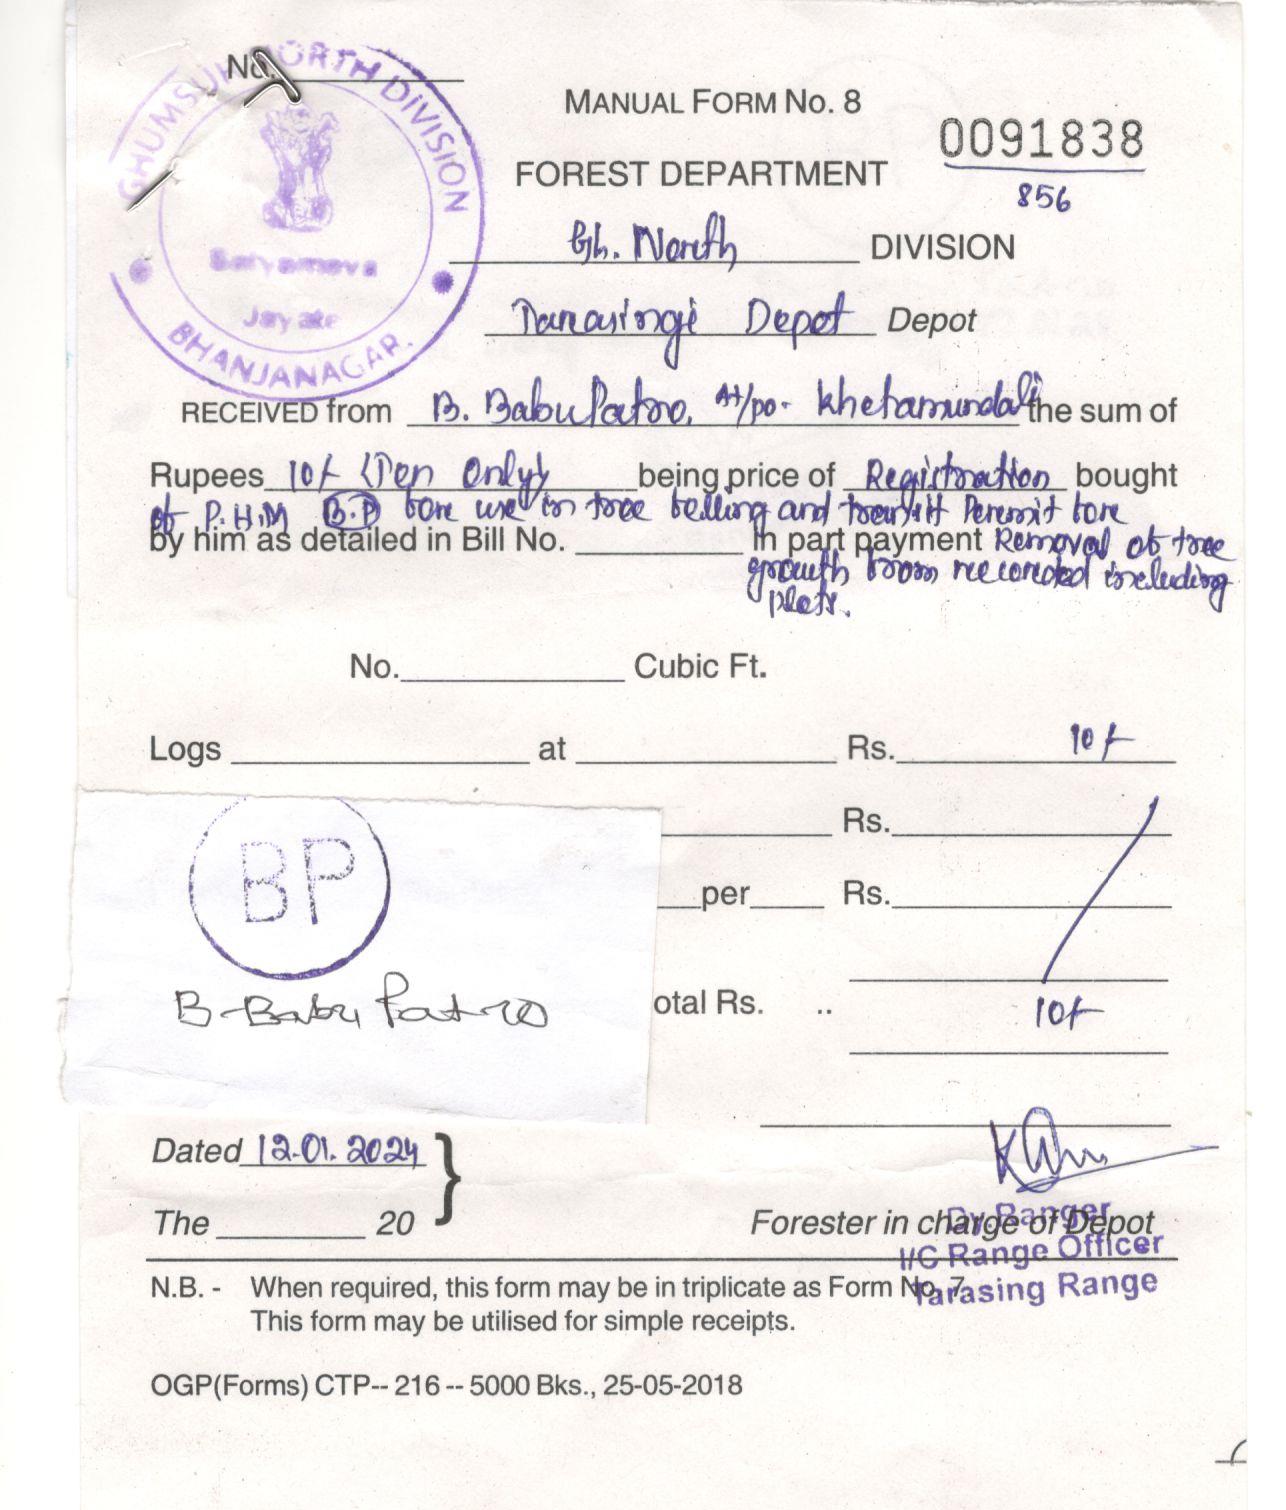 No.
GHUMSUR NORTH DIVISION
BHANJANAGAR.
Satyameva
Jayate
MANUAL FORM No. 8
0091838
856
FOREST DEPARTMENT
Gh. North DIVISION
Tarasingi Depot Depot
RECEIVED from B. Babu Patro, At/po- Khetamundali the sum of
Rupees 10/- (Ten Only) being price of Registration bought
of P.H.M B.P fore use in tree felling and transit Peremit fore
by him as detailed in Bill No. In part payment Removal of tree
growth from recorded including
plots.
No. Cubic Ft.
Logs at Rs. 10/-
Rs.
per Rs.
BP
B-Babu Patro
otal Rs. .. 10/-
Dated 12.01.2024 }
The 20
Forester in charge of Depot
Dy Ranger
I/C Range Officer
Tarasing Range
N.B. - When required, this form may be in triplicate as Form No. 7
This form may be utilised for simple receipts.
OGP(Forms) CTP-- 216 -- 5000 Bks., 25-05-2018